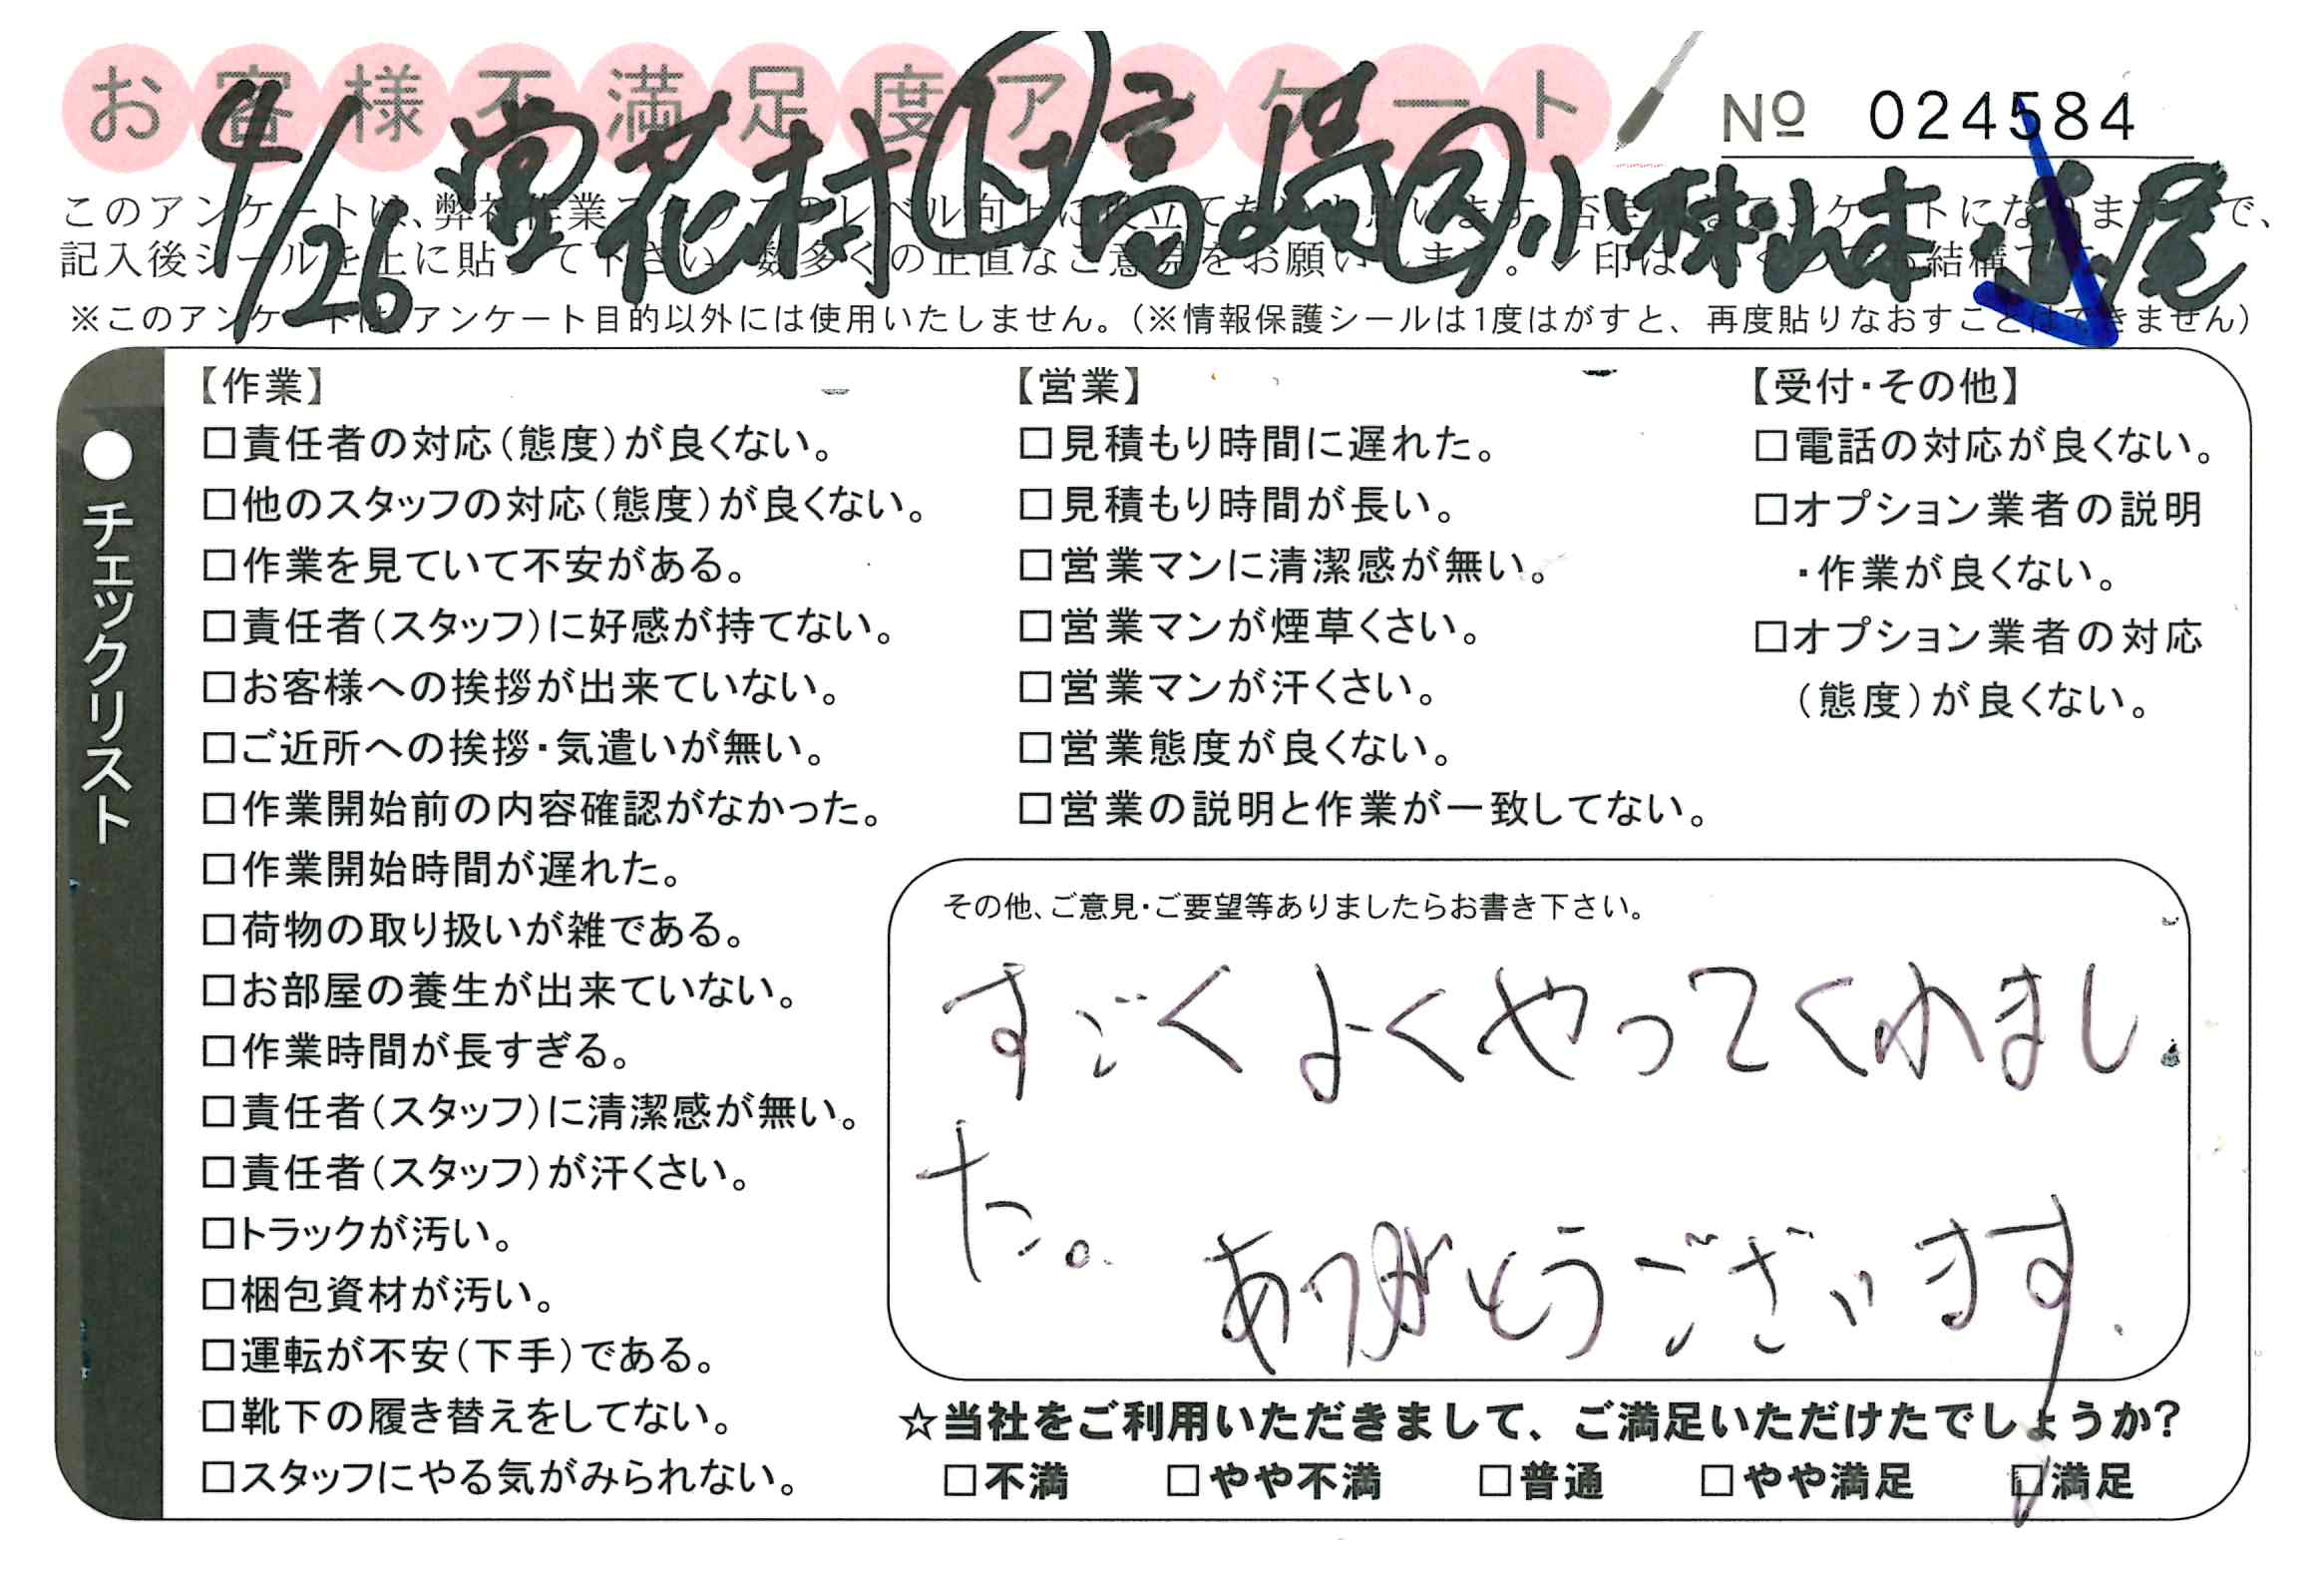 お客様不満足度アンケート
№ 024584
4/26 堂 花村 上 高 小林 山本 尾
このアンケートは、弊社作業
記入後シールを上に貼って下さい 数多くの正直なご意見をお願いします。レ印は 結構です
※このアンケートは、アンケート目的以外には使用いたしません。（※情報保護シールは1度はがすと、再度貼りなおすことはできません）
●チェックリスト
【作業】
□責任者の対応（態度）が良くない。
□他のスタッフの対応（態度）が良くない。
□作業を見ていて不安がある。
□責任者（スタッフ）に好感が持てない。
□お客様への挨拶が出来ていない。
□ご近所への挨拶・気遣いが無い。
□作業開始前の内容確認がなかった。
□作業開始時間が遅れた。
□荷物の取り扱いが雑である。
□お部屋の養生が出来ていない。
□作業時間が長すぎる。
□責任者（スタッフ）に清潔感が無い。
□責任者（スタッフ）が汗くさい。
□トラックが汚い。
□梱包資材が汚い。
□運転が不安（下手）である。
□靴下の履き替えをしてない。
□スタッフにやる気がみられない。
【営業】
□見積もり時間に遅れた。
□見積もり時間が長い。
□営業マンに清潔感が無い。
□営業マンが煙草くさい。
□営業マンが汗くさい。
□営業態度が良くない。
□営業の説明と作業が一致してない。
【受付・その他】
□電話の対応が良くない。
□オプション業者の説明
・作業が良くない。
□オプション業者の対応
（態度）が良くない。
その他、ご意見・ご要望等ありましたらお書き下さい。
すごくよくやってくれまし
た。 ありがとうございます.
☆当社をご利用いただきまして、ご満足いただけたでしょうか?
□不満 □やや不満 □普通 □やや満足 □満足